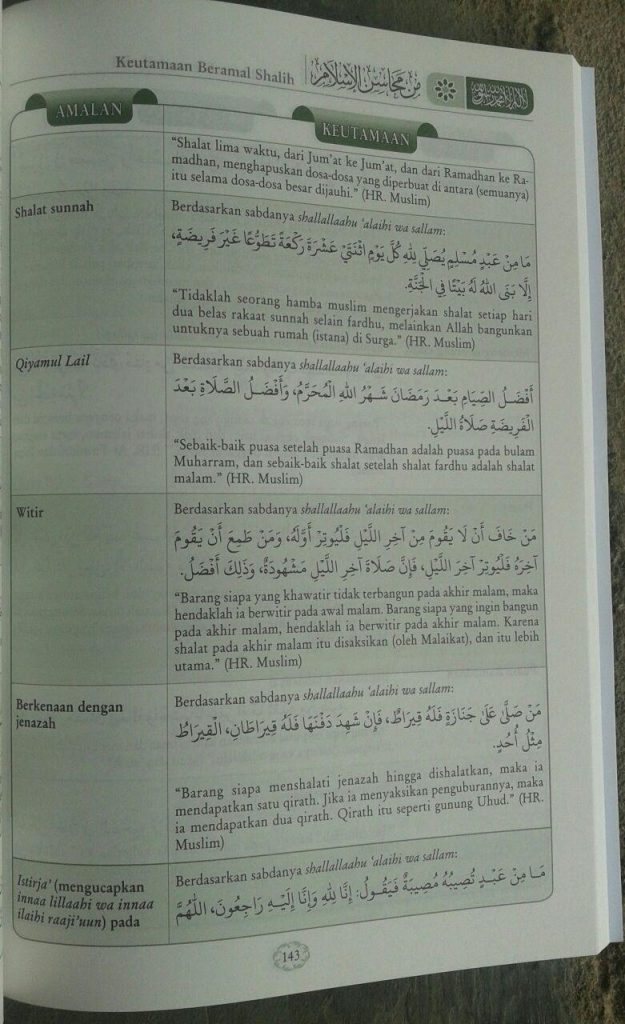 Keutamaan Beramal Shalih
من محاسن الإسلام
لا إله إلا الله محمد رسول الله
AMALAN
KEUTAMAAN
“Shalat lima waktu, dari Jum’at ke Jum’at, dan dari Ramadhan ke Ra-
madhan, menghapuskan dosa-dosa yang diperbuat di antara (semuanya)
itu selama dosa-dosa besar dijauhi.” (HR. Muslim)
Shalat sunnah
Berdasarkan sabdanya shallallaahu ‘alaihi wa sallam:
مَا مِنْ عَبْدٍ مُسْلِمٍ يُصَلِّي لِلّٰهِ كُلَّ يَوْمٍ اثْنَتَيْ عَشْرَةَ رَكْعَةً تَطَوُّعًا غَيْرَ فَرِيضَةٍ،
إِلَّا بَنَى اللهُ لَهُ بَيْتًا فِي الْجَنَّةِ.
“Tidaklah seorang hamba muslim mengerjakan shalat setiap hari
dua belas rakaat sunnah selain fardhu, melainkan Allah bangunkan
untuknya sebuah rumah (istana) di Surga.” (HR. Muslim)
Qiyamul Lail
Berdasarkan sabdanya shallallaahu ‘alaihi wa sallam:
أَفْضَلُ الصِّيَامِ بَعْدَ رَمَضَانَ شَهْرُ اللهِ الْمُحَرَّمُ، وَأَفْضَلُ الصَّلَاةِ بَعْدَ
الْفَرِيضَةِ صَلَاةُ اللَّيْلِ.
“Sebaik-baik puasa setelah puasa Ramadhan adalah puasa pada bulam
Muharram, dan sebaik-baik shalat setelah shalat fardhu adalah shalat
malam.” (HR. Muslim)
Witir
Berdasarkan sabdanya shallallaahu ‘alaihi wa sallam:
مَنْ خَافَ أَنْ لَا يَقُومَ مِنْ آخِرِ اللَّيْلِ فَلْيُوتِرْ أَوَّلَهُ، وَمَنْ طَمِعَ أَنْ يَقُومَ
آخِرَهُ فَلْيُوتِرْ آخِرَ اللَّيْلِ، فَإِنَّ صَلَاةَ آخِرِ اللَّيْلِ مَشْهُودَةٌ، وَذٰلِكَ أَفْضَلُ.
“Barang siapa yang khawatir tidak terbangun pada akhir malam, maka
hendaklah ia berwitir pada awal malam. Barang siapa yang ingin bangun
pada akhir malam, hendaklah ia berwitir pada akhir malam. Karena
shalat pada akhir malam itu disaksikan (oleh Malaikat), dan itu lebih
utama.” (HR. Muslim)
Berkenaan dengan
jenazah
Berdasarkan sabdanya shallallaahu ‘alaihi wa sallam:
مَنْ صَلَّى عَلَى جَنَازَةٍ فَلَهُ قِيرَاطٌ، فَإِنْ شَهِدَ دَفْنَهَا فَلَهُ قِيرَاطَانِ، الْقِيرَاطُ
مِثْلُ أُحُدٍ.
“Barang siapa menshalati jenazah hingga dishalatkan, maka ia
mendapatkan satu qirath. Jika ia menyaksikan penguburannya, maka
ia mendapatkan dua qirath. Qirath itu seperti gunung Uhud.” (HR.
Muslim)
Istirja’ (mengucapkan
innaa lillaahi wa innaa
ilaihi raaji’uun) pada
Berdasarkan sabdanya shallallaahu ‘alaihi wa sallam:
مَا مِنْ عَبْدٍ تُصِيبُهُ مُصِيبَةٌ فَيَقُولُ: إِنَّا لِلّٰهِ وَإِنَّا إِلَيْهِ رَاجِعُونَ، اللّٰهُمَّ
143